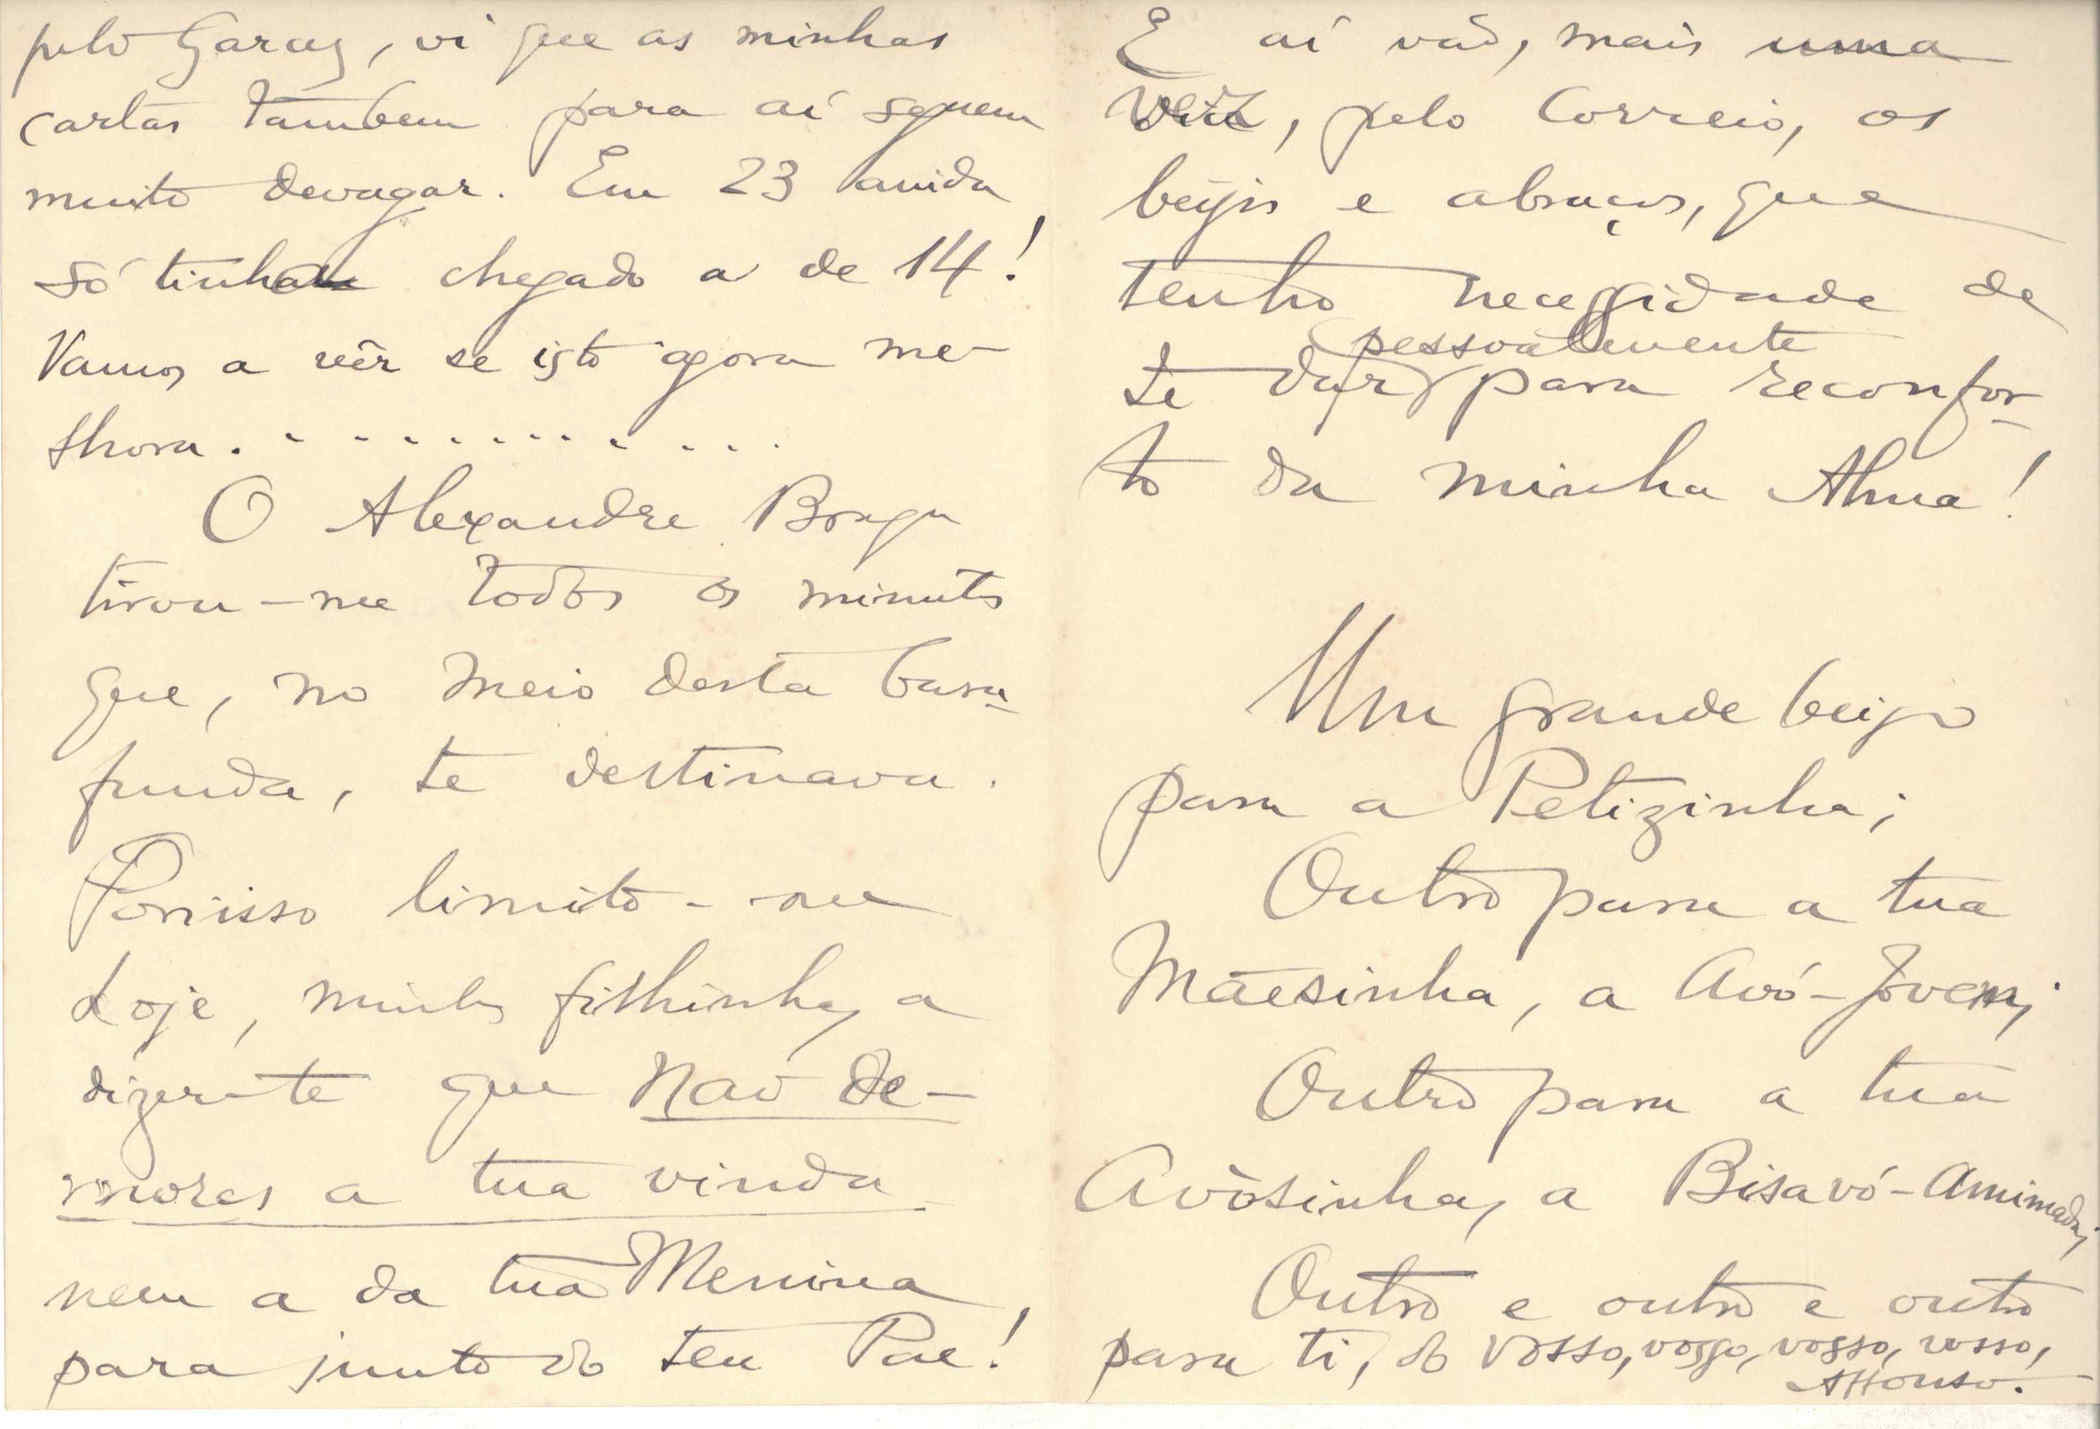 pelo Garcez, vi que as minhas
cartas tambem para aí seguem
muito devagar. Em 23 ainda
só tinha chegado a de 14!
Vamos a vêr se isto agora me-
lhora. . . . . . . . . . . . .
O Alexandre Braga
tirou-me todos os minutos
que, no meio desta bara-
funda, te destinava.
Porisso limito-me
hoje, minha filhinha, a
dizer-te que não de-
mores a tua vinda
nem a da tua Menina
para junto do teu Pae!
E aí vão, mais uma
vez, pelo Correio, os
beijos e abraços, que
tenho necessidade de
te dar pessoalmente para reconfor-
to da minha Alma!
Um grande beijo
para a Petizinha;
Outro para a tua
Mãesinha, a Avó-Jovem;
Outro para a tua
Avòsinha, a Bisavó-Animada;
Outro e outro e outro
para ti, do vosso, vosso, vosso, vosso,
Affonso.